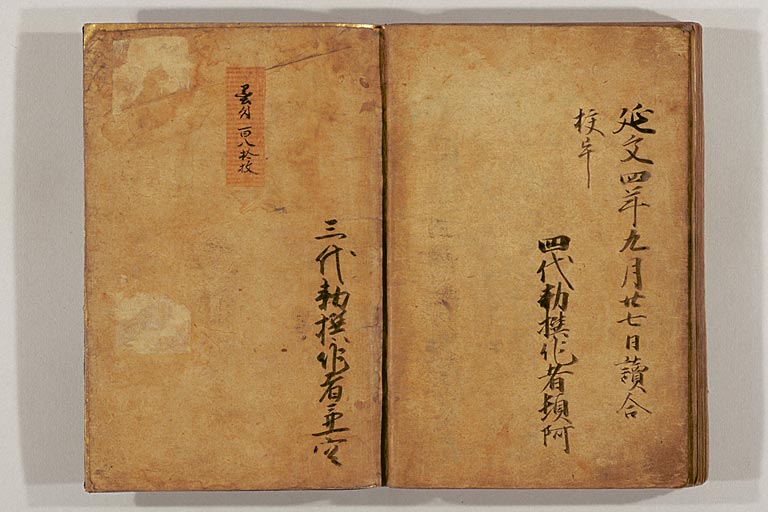 延文四年九月廿七日讀合
校畢
四代勅撰作者頓阿
三代勅撰作者兼空
墨付一百八拾枚